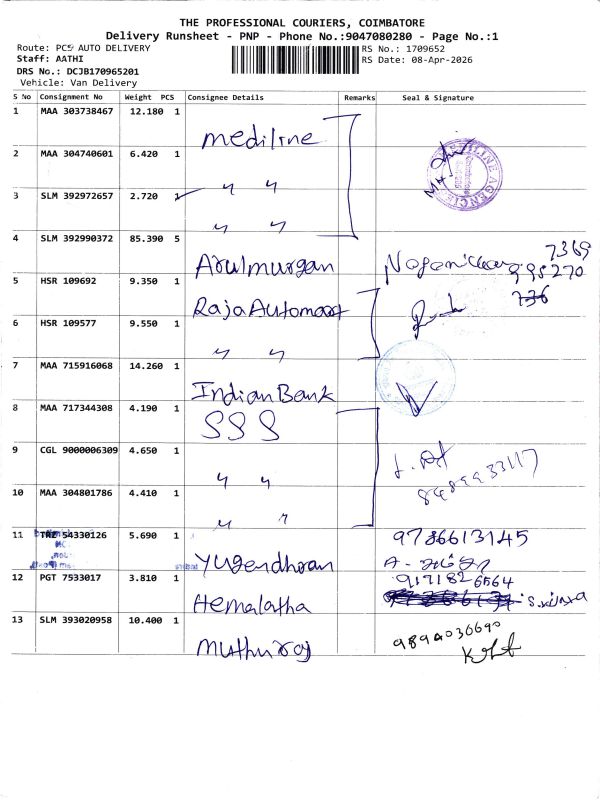 THE PROFESSIONAL COURIERS, COIMBATORE
Delivery Runsheet - PNP - Phone No.:9047080280 - Page No.:1
Route: PCS AUTO DELIVERY
RS No.: 1709652
Staff: AATHI
RS Date: 08-Apr-2026
DRS No.: DCJB170965201
Vehicle: Van Delivery
S No Consignment No Weight PCS Consignee Details Remarks Seal & Signature
1 MAA 303738467 12.180 1 mediline
2 MAA 304740601 6.420 1 〃 〃
3 SLM 392972657 2.720 1 〃 〃
4 SLM 392990372 85.390 5 Arulmurgan
5 HSR 109692 9.350 1 Raja Automoot
6 HSR 109577 9.550 1 〃 〃
7 MAA 715916068 14.260 1 Indian Bank
8 MAA 717344308 4.190 1 SSS
9 CGL 9000006309 4.650 1 〃 〃
10 MAA 304801786 4.410 1 〃 〃
11 54330126 5.690 1 Yugendhran 9786613145
12 PGT 7533017 3.810 1 Hemalatha 9171826564
13 SLM 393020958 10.400 1 muthuraj 9894036690